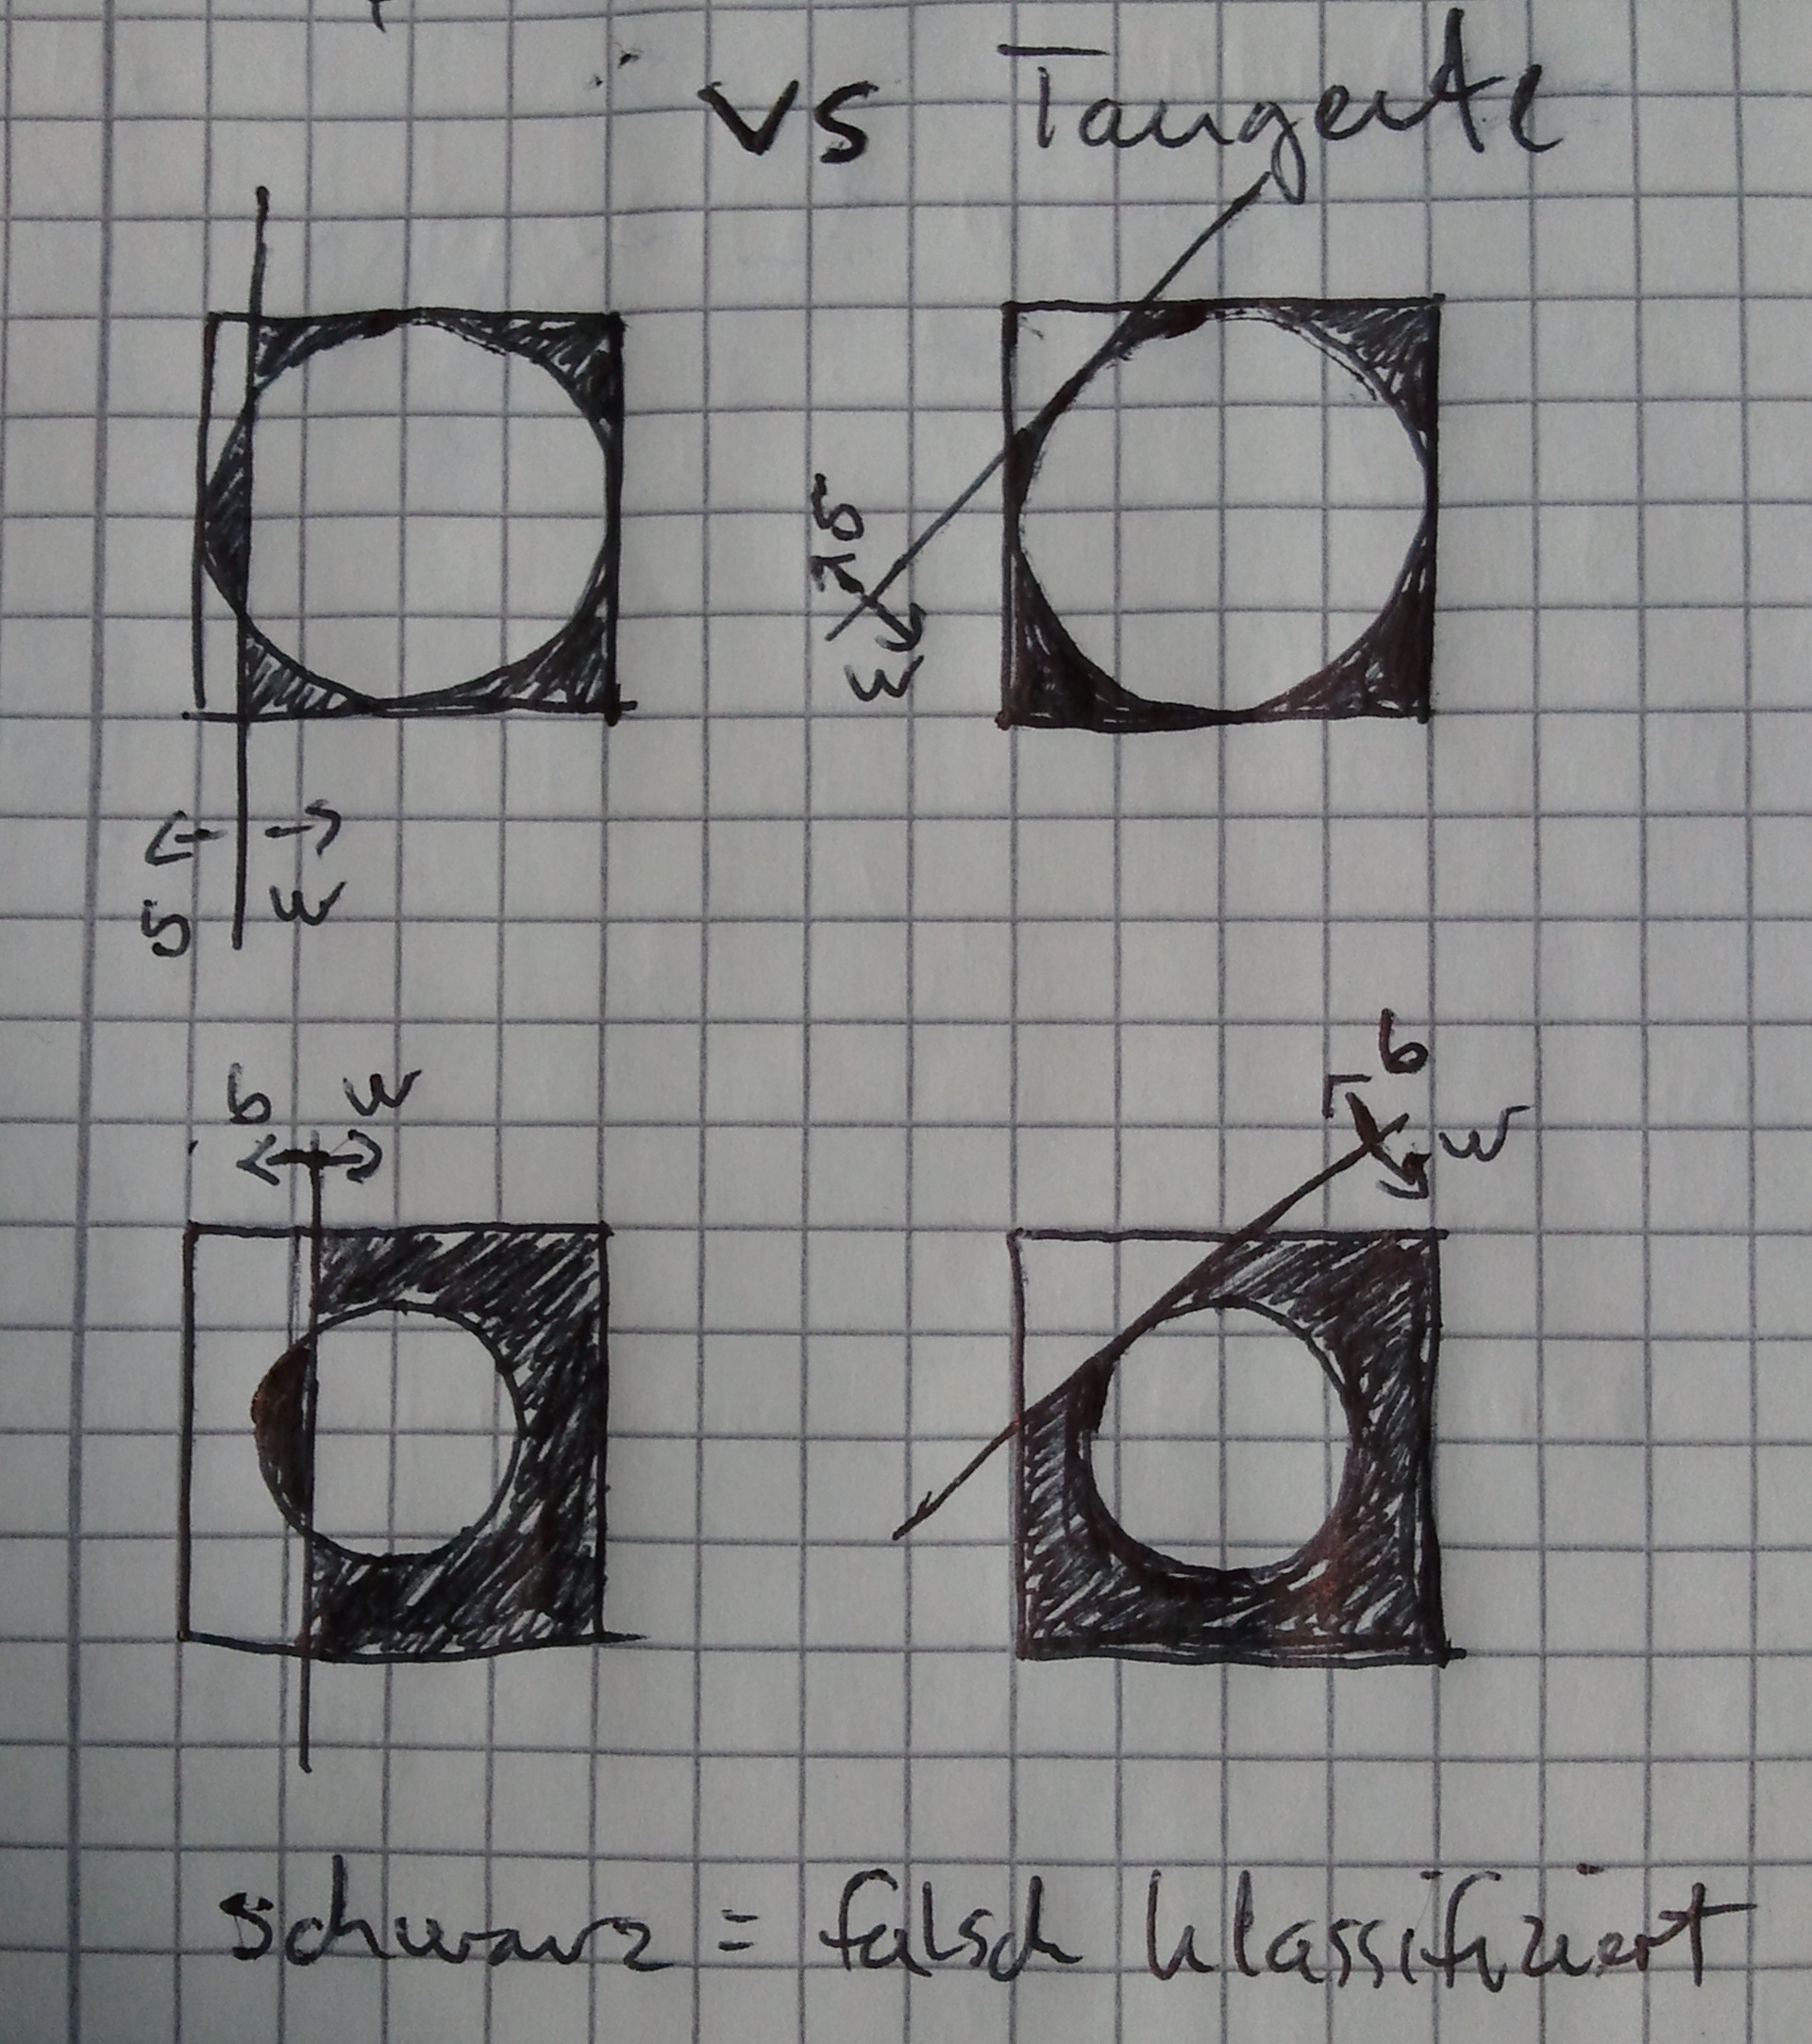 vs Tangente
b
w
b w
b w
b
w
schwarz = falsch klassifiziert